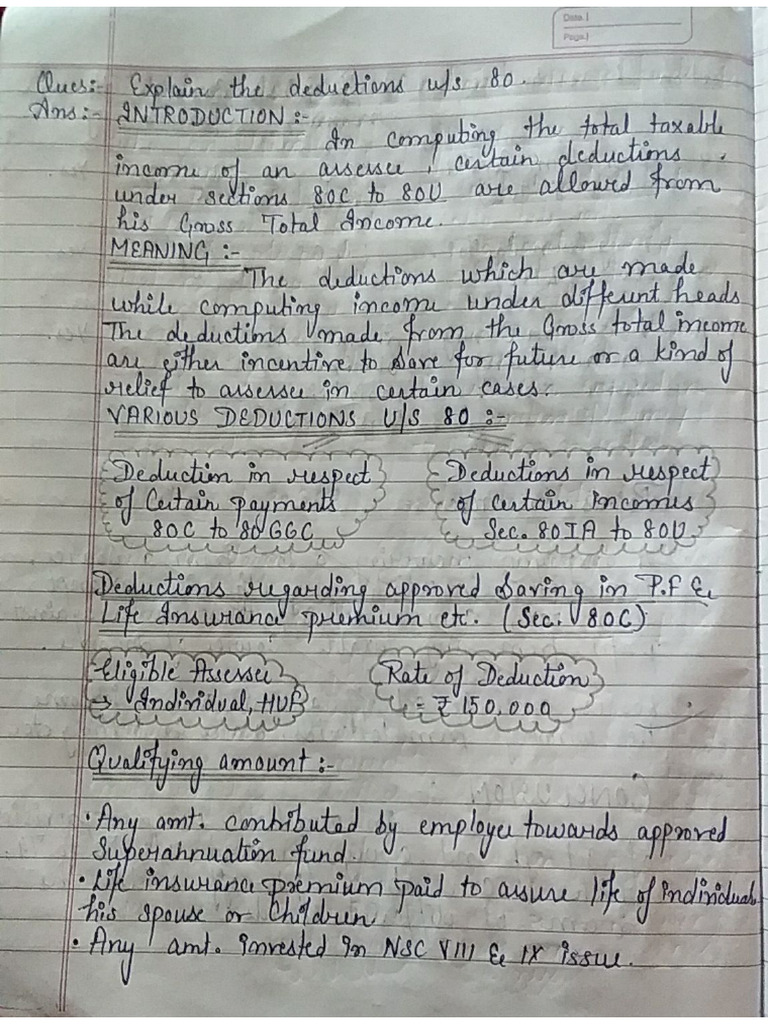 Date |
Page |
Ques:- Explain the deductions u/s 80.
Ans:- INTRODUCTION :-
In computing the total taxable
income of an assessee, certain deductions
under sections 80C to 80U are allowed from
his Gross Total Income.
MEANING :-
The deductions which are made
while computing income under different heads
The deductions made from the Gross total income
are either incentive to save for future or a kind of
relief to assessee in certain cases.
VARIOUS DEDUCTIONS U/S 80 :-
Deduction in respect
of Certain payments
80C to 80GGC
Deductions in respect
of certain incomes
Sec. 80IA to 80U
Deductions regarding approved Saving in P.F &
Life Insurance premium etc. (Sec. 80C)
Eligible Assessee
→ Individual, HUF
Rate of Deduction
= ₹ 150,000
Qualifying amount :-
• Any amt. contributed by employee towards approved
Superannuation fund.
• Life insurance premium paid to assure life of individual
his spouse or Children
• Any amt. invested in NSC VIII & IX issue.